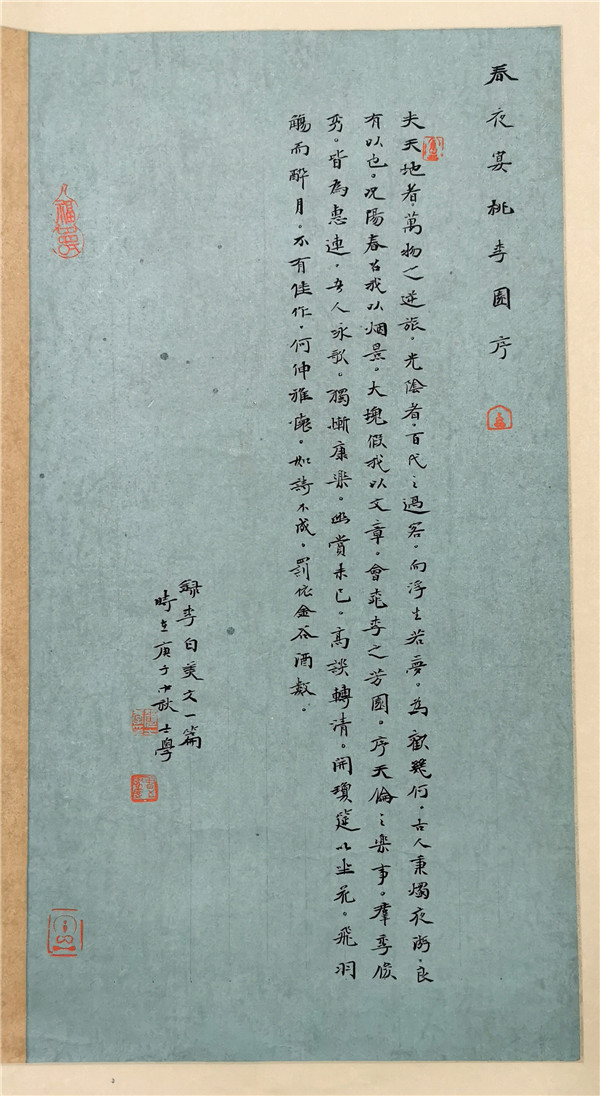 春夜宴桃李園序
夫天地者。萬物之逆旅。光陰者。百代之過客。而浮生若夢。為歡幾何。古人秉燭夜游。良
有以也。况陽春召我以烟景。大塊假我以文章。會桃李之芳園。序天倫之樂事。羣季俊
秀。皆為惠連。吾人咏歌。獨慚康樂。幽賞未已。高談轉清。開瓊筵以坐花。飛羽
觴而醉月。不有佳作。何伸雅懷。如詩不成。罰依金谷酒數。
録李白美文一篇
時在庚子中秋士學